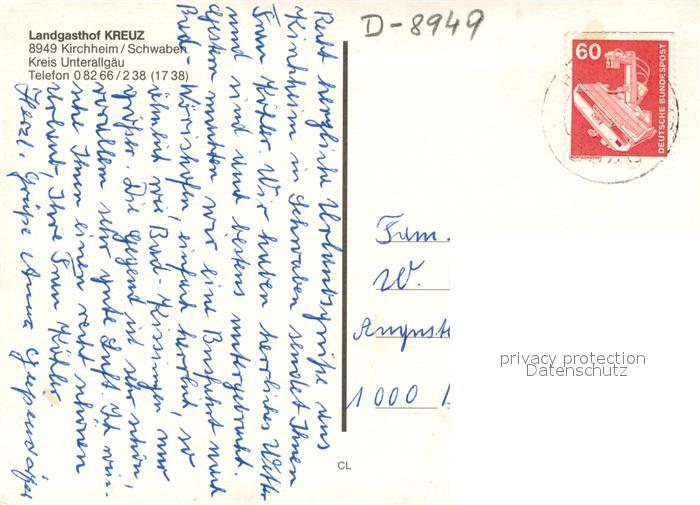 D-8949
Landgasthof KREUZ
8949 Kirchheim/Schwaben
Kreis Unterallgäu
Telefon 0 82 66/2 38 (17 38)
60
DEUTSCHE BUNDESPOST
Recht herzliche Urlaubsgrüße aus
Kirchheim in Schwaben sendet Ihnen
Frau Köhler. Wir haben herrliches Wetter
und sind auch bestens untergebracht.
Gestern machten wir eine Busfahrt nach
Bad-Wörishofen, einfach herrlich, so
ähnlich wie Bad-Kissingen nur
größer. Die Gegend ist sehr schön,
vorallem sehr gute Luft. Ich wün-
sche Ihnen einen recht schönen
Urlaub, Ihre Frau Köhler.
Herzl. Grüße Anna
Fam.
W.
Auguste
1000
CL
privacy protection
Datenschutz